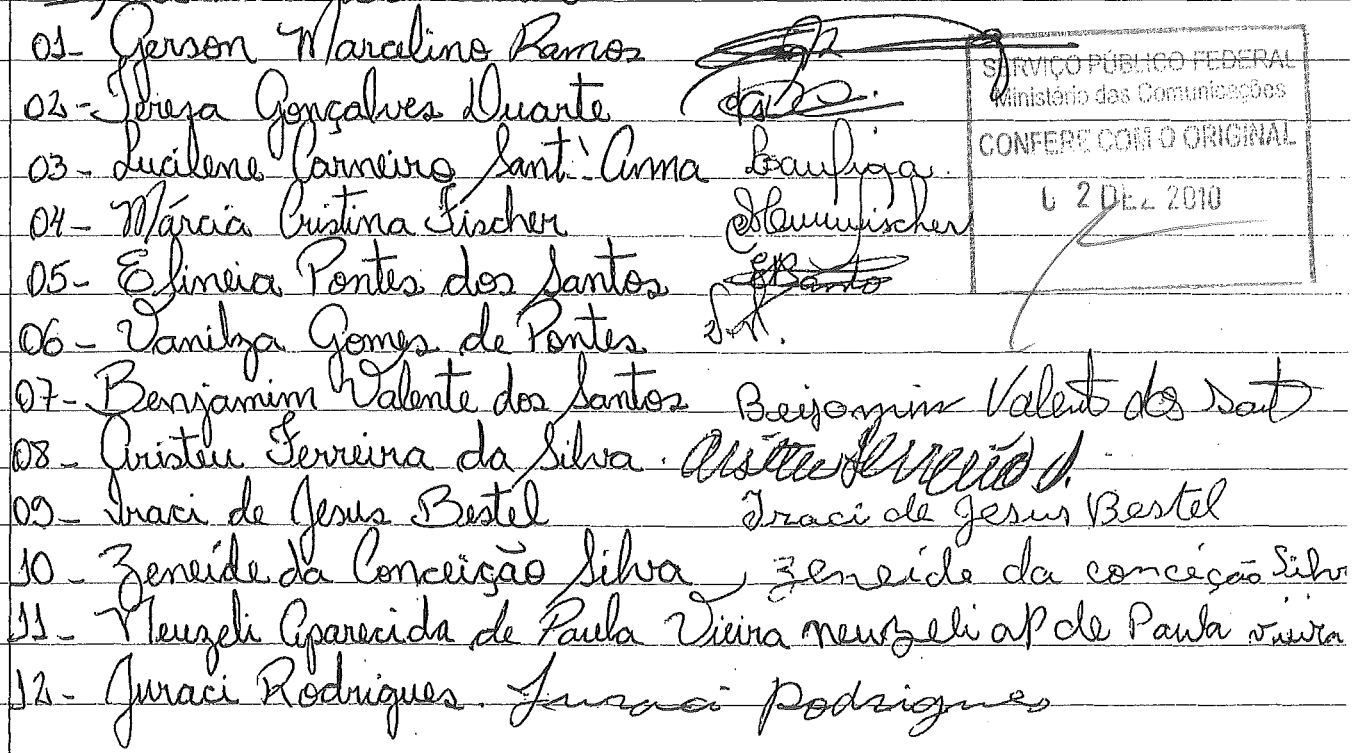 01- Gerson Marcelino Ramos
02- Tereza Gonçalves Duarte
03- Lucilene Carneiro Sant'Anna
04- Márcia Cristina Fischer
05- Efineia Pontes dos Santos
06- Vanilza Gomes de Pontes
07- Benjamim Valente dos Santos Beijomin Valent dos Sant
08- Aristeu Ferreira da Silva.
09- Iraci de Jesus Bestel Iraci de Jesus Bestel
10- Zeneide da Conceição Silva, zeneide da conceção Silv
11- Neuzeli Aparecida de Paula Vieira neuzeli aP de Paula vieira
12- Juraci Rodrigues. Juraci Rodrigues
SERVIÇO PÚBLICO FEDERAL
Ministério das Comunicações
CONFERE COM O ORIGINAL
0 2 DEZ 2010